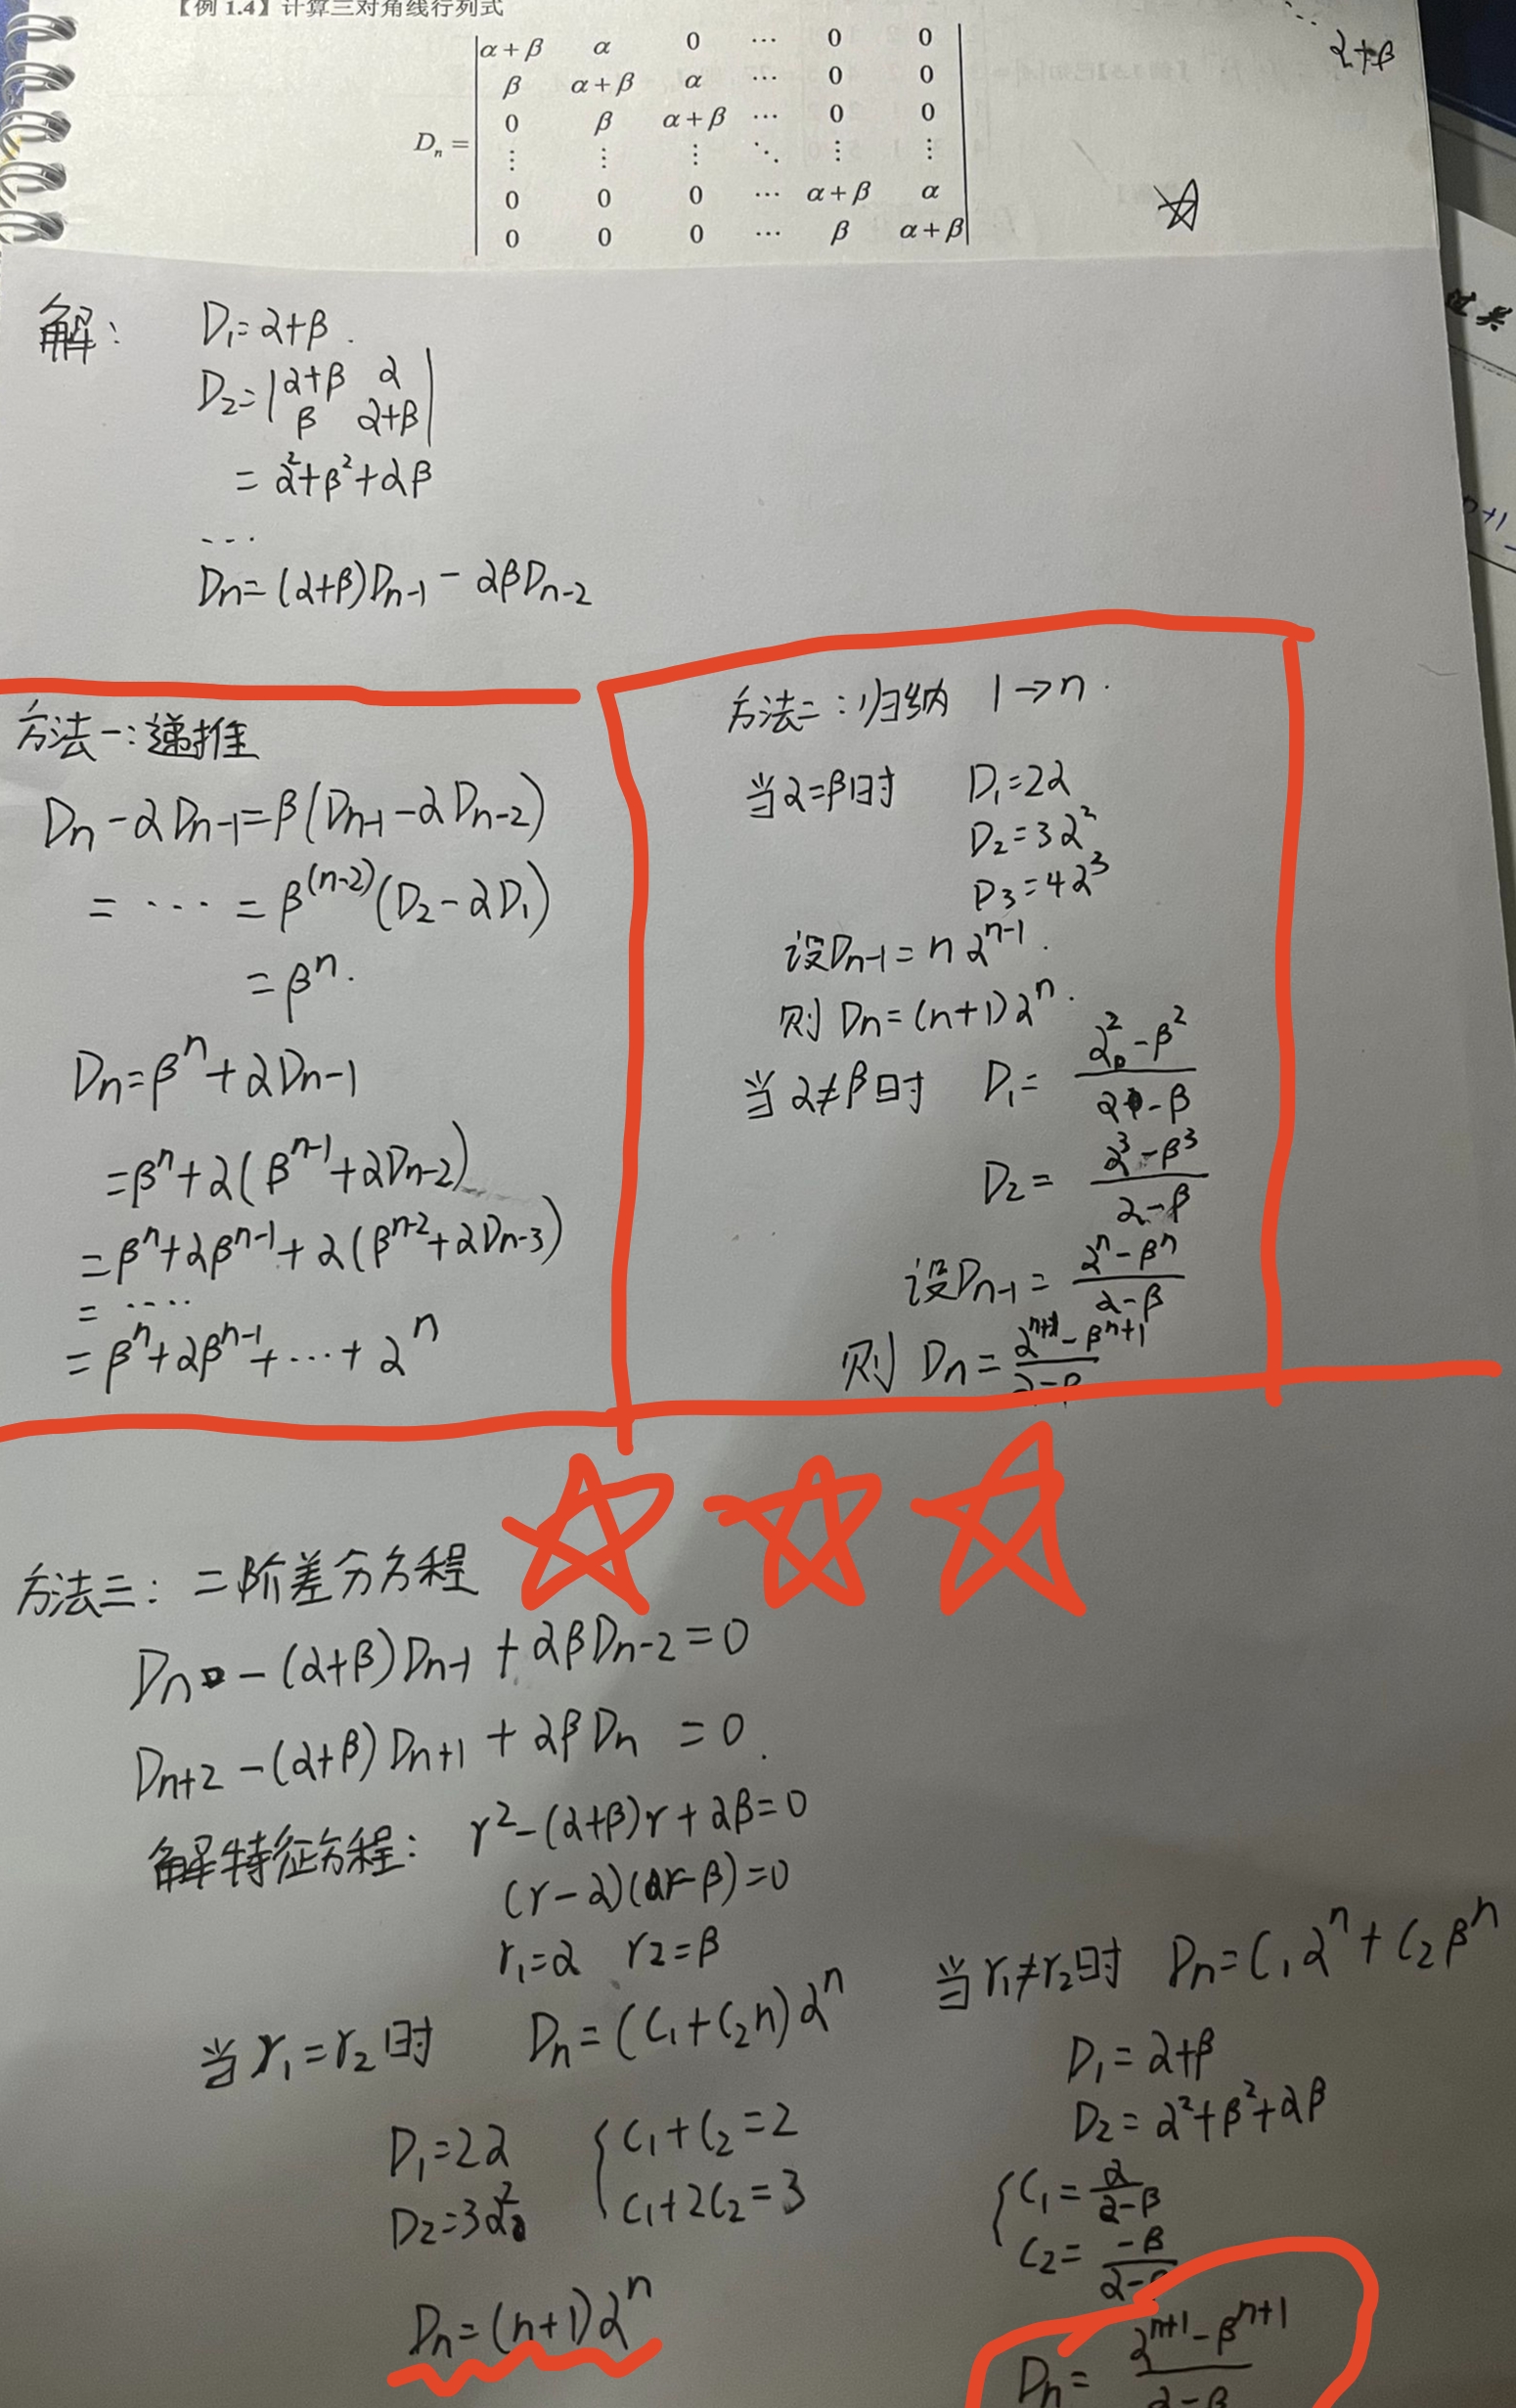 【例 1.4】计算三对角线行列式
α+β α 0 ⋯ 0 0
β α+β α ⋯ 0 0
0 β α+β ⋯ 0 0
Dₙ =
⋮ ⋮ ⋮ ⋱ ⋮ ⋮
0 0 0 ⋯ α+β α
0 0 0 ⋯ β α+β
α+β
解: D₁=α+β.
D₂=|α+β α
β α+β|
= α²+β²+αβ
...
Dn=(α+β)Dn-1 - αβDn-2
方法一:递推
Dn-αDn-1=β(Dn-1-αDn-2)
= ⋯ = β^(n-2)(D₂-αD₁)
= βⁿ.
Dn=βⁿ+αDn-1
=βⁿ+α(β^n-1+αDn-2)
=βⁿ+αβ^n-1+α(β^n-2+αDn-3)
= ....
=βⁿ+αβ^n-1+⋯+αⁿ
方法二:归纳 1→n.
当α=β时 D₁=2α
D₂=3α²
D₃=4α³
设Dn-1=nα^n-1.
则Dn=(n+1)αⁿ.
当α≠β时 D₁= (α²-β²)/(α-β)
D₂= (α³-β³)/(α-β)
设Dn-1= (αⁿ-βⁿ)/(α-β)
则Dn= (α^n+1-β^n+1)/(α-β)
方法三:二阶差分方程
Dn-(α+β)Dn-1+αβDn-2=0
Dn+2-(α+β)Dn+1+αβDn=0.
解特征方程: r²-(α+β)r+αβ=0
(r-α)(r-β)=0
r₁=α r₂=β
当r₁=r₂时 Dn=(C₁+C₂n)αⁿ
D₁=2α { C₁+C₂=2
D₂=3α² C₁+2C₂=3
Dn=(n+1)αⁿ
当r₁≠r₂时 Dn=C₁αⁿ+C₂βⁿ
D₁=α+β
D₂=α²+β²+αβ
{ C₁= α/(α-β)
C₂= -β/(α-β)
Dn= (α^n+1-β^n+1)/(α-β)
过关
n+1